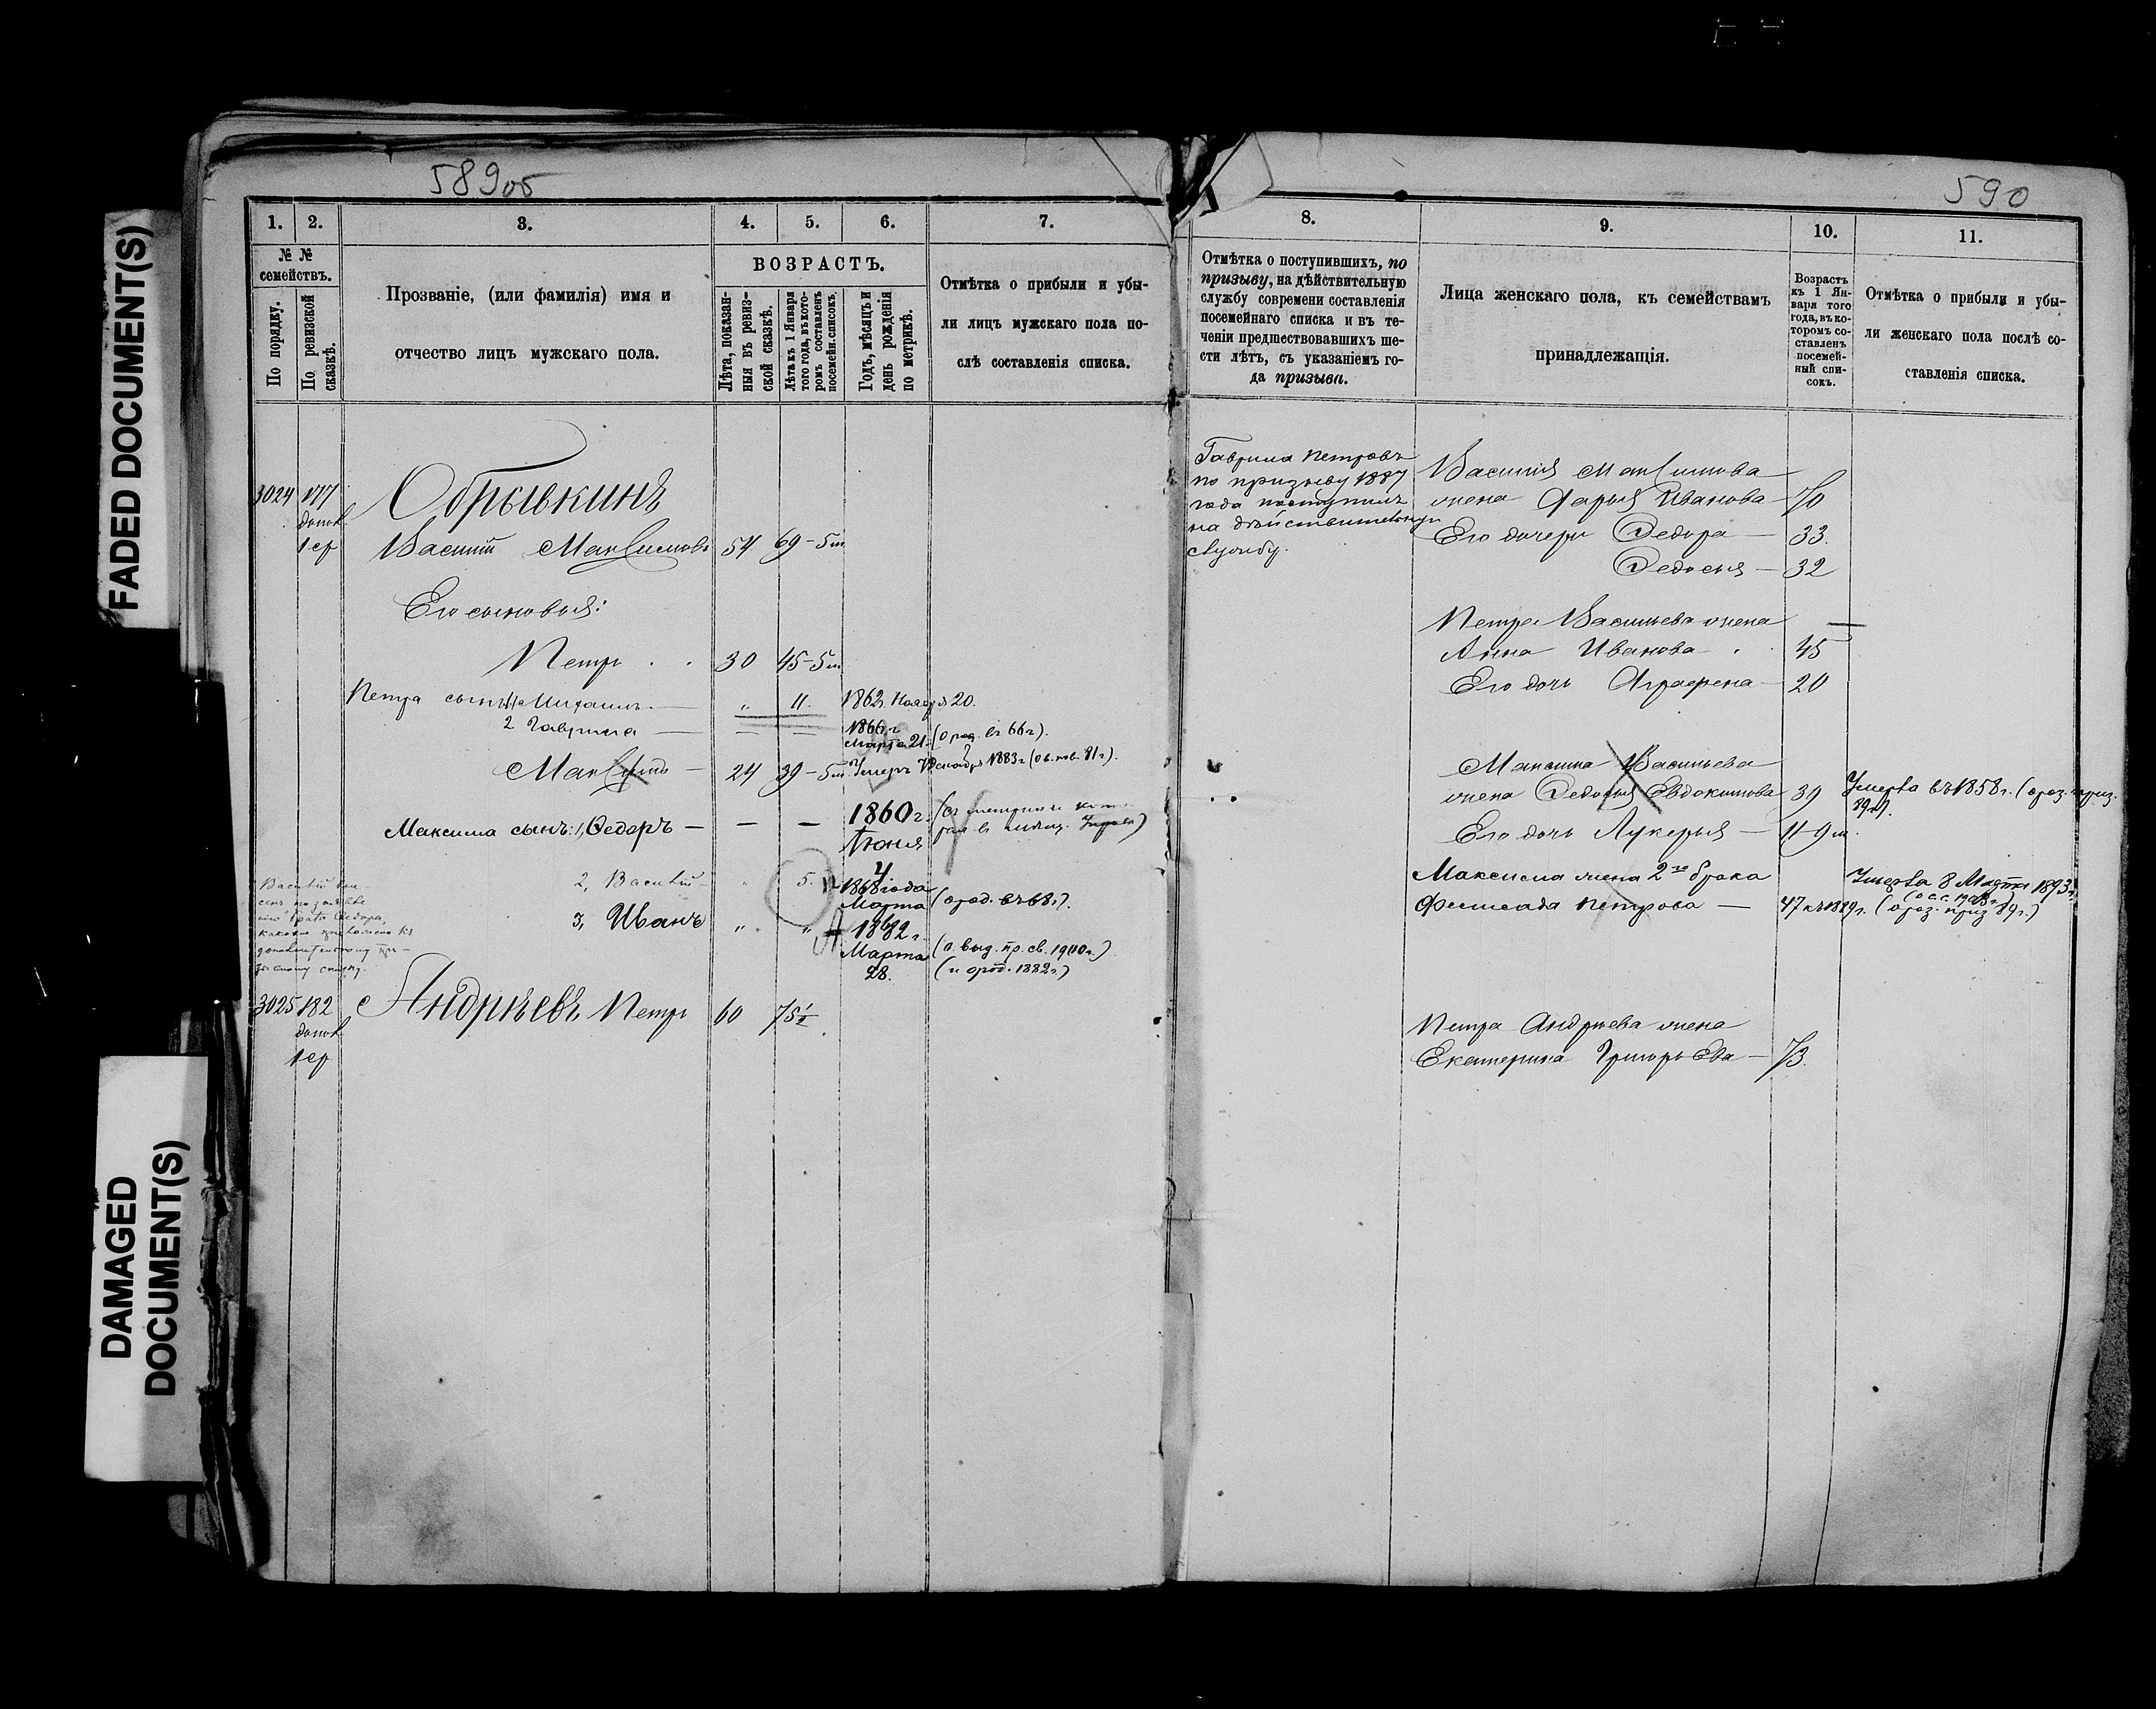 FADED DOCUMENT(S)
DAMAGED
DOCUMENT(S)
589об
1. 2. 3. 4. 5. 6. 7.
№ №
семействъ.
По порядку.
По ревизской
сказкѣ.
Прозваніе, (или фамилія) имя и
отчество лицъ мужскаго пола.
ВОЗРАСТЪ.
Лѣта, показан-
ныя въ ревиз-
ской сказкѣ.
Лѣта къ 1 Января
того года, въ кото-
ромъ составленъ
посемейн. списокъ.
Годъ, мѣсяцъ и
день рожденія
по метрикѣ.
Отмѣтка о прибыли и убы-
ли лицъ мужскаго пола по-
слѣ составленія списка.
3024 177 Обрывкинъ
допол.
1 ср Василій Максимовъ 54 69-5м
Его сыновья:
Петръ . . 30 45-5м
Петра сынъ: 1, Михаилъ — „ 11. 1862г. Ноября 20.
2 Гаврила — — — 1866 г.
Марта 21. (о род. въ 66 г).
Максимъ — 24 39-5м. Умеръ Декабря 1883г.
Максима сынъ: 1, Ѳедоръ — — — 1860 г.
Іюня
4
2, Василій „ 5. 1868 года
Марта (о род. въ 68г).
3, Иванъ „ „ 1882 г.
Марта
28.
(о выд. пр. св. 1900 г.)
(и о род. 1882 г.)
брата Ѳедора,
призывному списку.
3025 182 Андрѣевъ Петръ 60 75½
допол
1 ср
590
8. 9. 10. 11.
Отмѣтка о поступившихъ, по
призыву, на дѣйствительную
службу современи составленія
посемейнаго списка и въ те-
ченіи предшествовавшихъ ше-
сти лѣтъ, съ указаніемъ го-
да призыва.
Лица женскаго пола, къ семействамъ
принадлежащія.
Возрастъ
къ 1 Ян-
варя того
года, въ ко-
торомъ со-
ставленъ
посемей-
ный спи-
сокъ.
Отмѣтка о прибыли и убы-
ли женскаго пола послѣ со-
ставленія списка.
Гаврила Петровъ
по призыву 1887
года поступилъ
на дѣйствительную
службу.
Василія Максимова
жена Дарья Иванова 70
Его дочери Ѳедора — 33.
Ѳедосья — 32
Петра Васильева жена —
Анна Иванова . 45
Его дочь Аграфена — 20
Максима Васильева
жена Ѳедосья Евдокимова 39 Умерла въ 1858 г.
89г).
Его дочь Лукерья — 11-9м.
Максима жена 2го брака
Петрова — 47 къ 1889г.
Умерла 8 Марта 1893 г.
Петра Андрѣева жена
Екатерина Григорьева — 73.